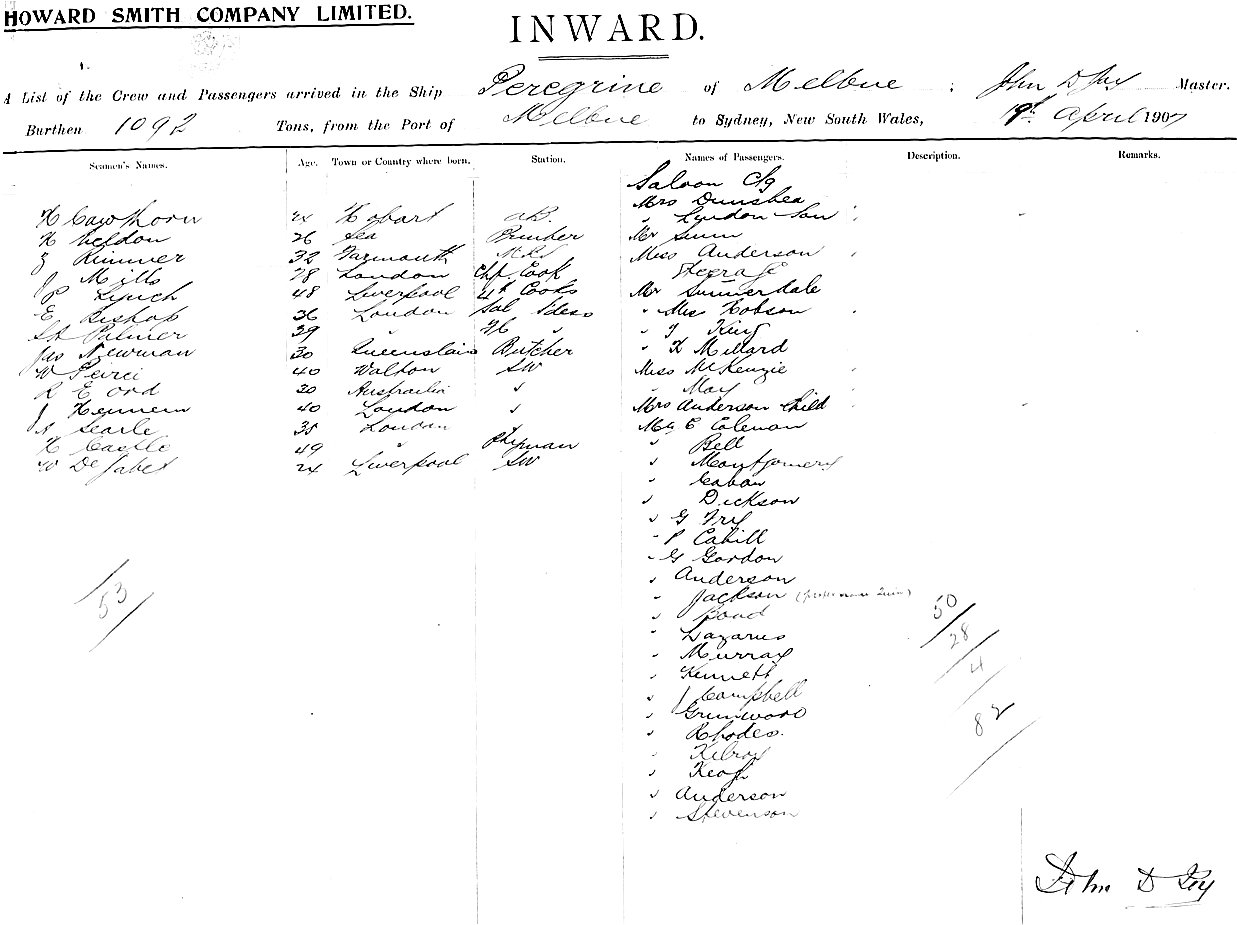 HOWARD SMITH COMPANY LIMITED.
INWARD.
A List of the Crew and Passengers arrived in the Ship Peregrine of Melbne : John D Master.
Burthen 1092 Tons, from the Port of Melbne to Sydney, New South Wales, 19th April 1907
Seamen's Names. Age. Town or Country where born. Station. Names of Passengers. Description. Remarks.
Saloon
Mrs Dunshea
H Cawthorn 24 Hobart AB. " Lyndon Son
H Weldon 26 Sea Mr
Rimmer 32 Yarmouth Miss Anderson
J Mills 28 London Chf. Cook Steerage
P Lynch 48 Liverpool 4th Cooks Mr Summerdale
E Bishop 36 London Sal " Miss Hobson
Palmer 39 " " " King
Jas Newman 30 Butcher " Millard
W 40 Walton SW Miss McKenzie
R E Ord 30 Australia " " May
J 40 London " Mrs Anderson Child
Searle 35 London " C Coleman
H Castle 49 " " Bell
W De 24 Liverpool SW " Montgomery
"
" Dickson
" G Fry
" P Cahill
" G Gordon
" Anderson
53
" Jackson
50
" Bond
28
" Lazarus
" Murray
4
" Kenneth
" J Campbell
82
" Grunwood
" Rhodes.
" Kilroy
" Keogh
" Anderson
" Stevenson
John D